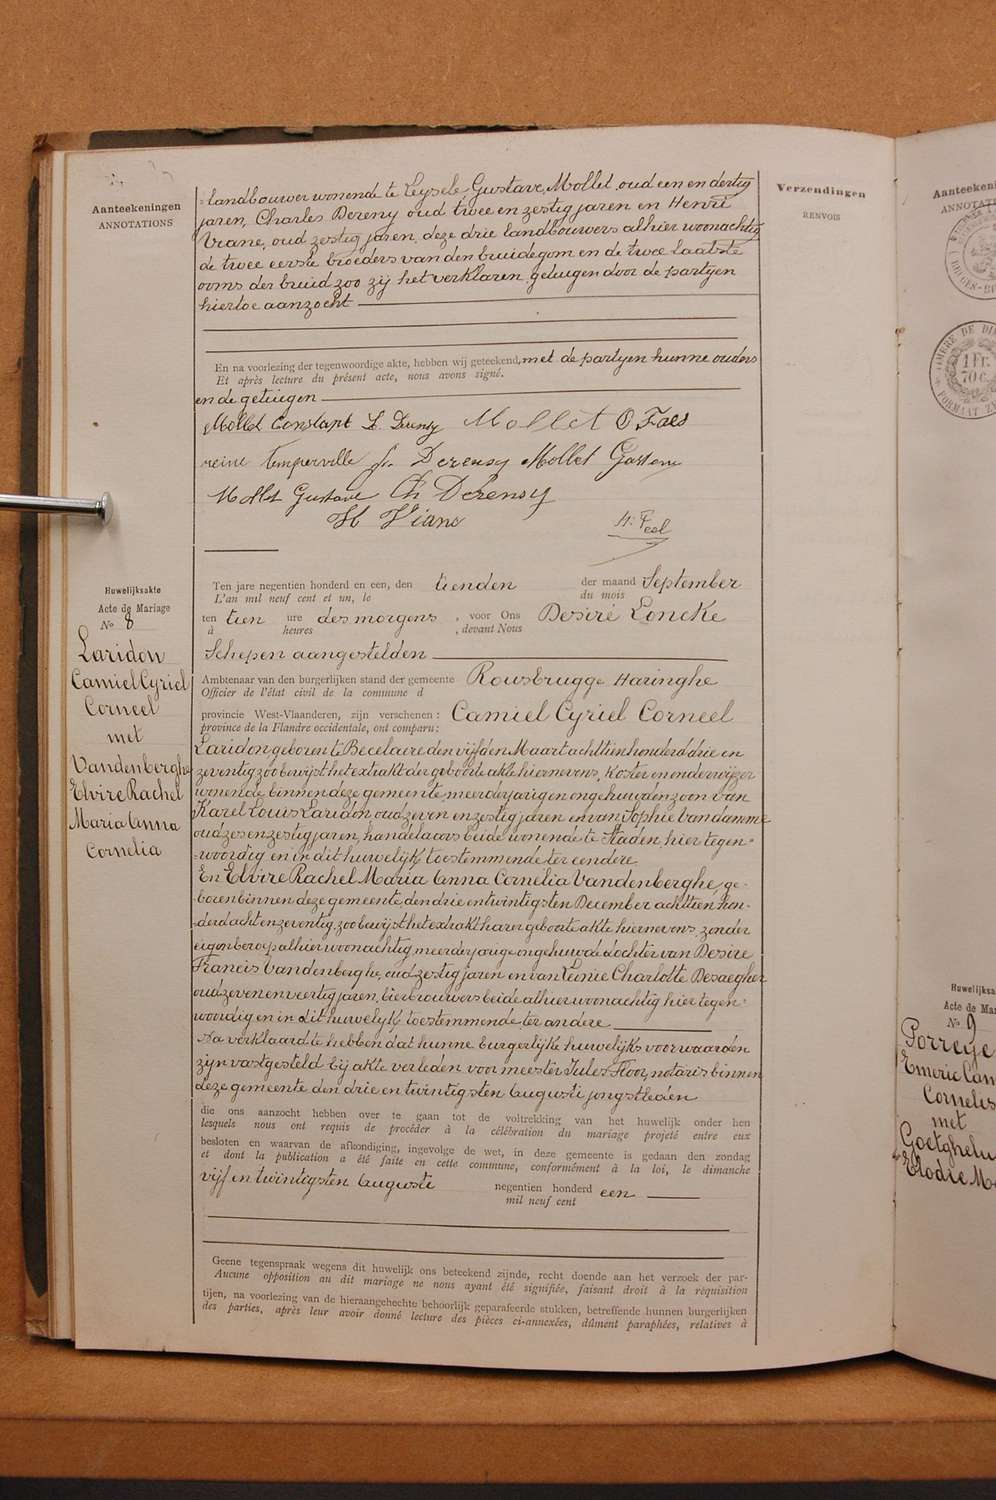 Aanteekeningen
ANNOTATIONS
Verzendingen
RENVOIS
landbouwer wonende te Leysele, Gustave Mollet, oud een en dertig
jaren, Charles Dereny oud twee en zestig jaren en Henri
Viane, oud zestig jaren, deze drie landbouwers alhier woonachtig
de twee eerste broeders van den bruidegom en de twee laatste
ooms der bruid zoo zij het verklaren, getuigen door de partijen
hiertoe aanzocht
En na voorlezing der tegenwoordige akte, hebben wij geteekend, met de partyen hunne ouders
Et après lecture du présent acte, nous avons signé.
en de getuigen
Mollet Constant L. Dereny Mollet O Faes
reine Temperville fr Derensy Mollet Gaston
Mollet Gustave Ch Derensy
H Viane
Huwelijksakte
Acte de Mariage
No 8
Laridon
Camiel Cyriel
Corneel
met
Vandenberghe
Elvire Rachel
Maria Anna
Cornelia
Ten jare negentien honderd en een, den tienden der maand September
L'an mil neuf cent et un, le du mois
ten tien ure des morgens, voor Ons Desiré Loncke
à heures , devant Nous
Schepen aangestelden
Ambtenaar van den burgerlijken stand der gemeente Rousbrugge Haringhe
Officier de l'état civil de la commune d
provincie West-Vlaanderen, zijn verschenen: Camiel Cyriel Corneel
province de la Flandre occidentale, ont comparu:
Laridon geboren te Becelaere den vijfden Maart achttien honderd drie en
zeventig zoo bewijst het extrakt der geboorte akte hiernevens, koster en onderwijzer
wonende binnen deze gemeente, meerderjarigen ongehuwden zoon van
Karel Louis Laridon, oud zeven en zestig jaren en van Sophie Vandamme
oud zes en zestig jaren, handelaars beide wonende te Staden, hier tegen=
=woordig en in dit huwelijk toestemmende ter eendere.
En Elvire Rachel Maria Anna Cornelia Vandenberghe, ge-
boren binnen deze gemeente, den drie en twintigsten December achttien hon-
derd acht en zeventig, zoo bewijst het extrakt harer geboorte akte hiernevens, zonder
eigen beroep alhier woonachtig, meerderjarige ongehuwde dochter van Desire
Francis Vandenberghe, oud zestig jaren en van Leinie Charlotte Desaegher
oud zeven en veertig jaren, bierbrouwers beide alhier woonachtig hier tegen=
woordig en in dit huwelijk toestemmende ter andere
Na verklaard te hebben dat hunne burgerlijke huwelijks voorwaarden
zijn vastgesteld bij akte verleden voor meester Jules Floor, notaris binnen
deze gemeente den drie en twintigsten Augusti jongstleden
die ons aanzocht hebben over te gaan tot de voltrekking van het huwelijk onder hen
lesquels nous ont requis de procéder à la célébration du mariage projeté entre eux
besloten en waarvan de afkondiging, ingevolge de wet, in deze gemeente is gedaan den zondag
et dont la publication a été faite en cette commune, conformément à la loi, le dimanche
vijf en twintigsten Augusti negentien honderd een
mil neuf cent
Geene tegenspraak wegens dit huwelijk ons beteekend zijnde, recht doende aan het verzoek der par-
Aucune opposition au dit mariage ne nous ayant été signifiée, faisant droit à la réquisition
tijen, na voorlezing van de hieraangehechte behoorlijk geparafeerde stukken, betreffende hunnen burgerlijken
des parties, après leur avoir donné lecture des pièces ci-annexées, dûment paraphées, relatives à
Aanteekeni
ANNOTAT
TIMBRE DE DI
1 Fr.
70 c.
FORMAAT
Huwelijksa
Acte de Mar
No 9
Porreye
Emeric Cam
Cornelis
met
Goetghelu
Elodie M